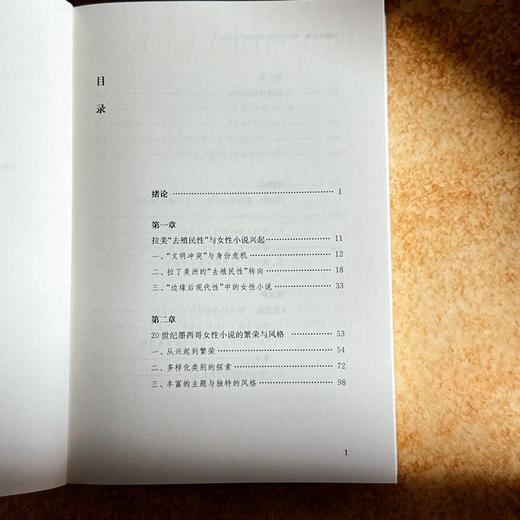 目
录
绪论 ………………………………………… 1
第一章
拉美“去殖民性”与女性小说兴起 ……………… 11
一、“文明冲突”与身份危机 …………………… 12
二、拉丁美洲的“去殖民性”转向 ……………… 18
三、“边缘后现代性”中的女性小说 …………… 33
第二章
20世纪墨西哥女性小说的繁荣与风格 ………… 53
一、从兴起到繁荣 …………………………… 54
二、多样化类别的探索 ……………………… 72
三、丰富的主题与独特的风格 ……………… 98
1